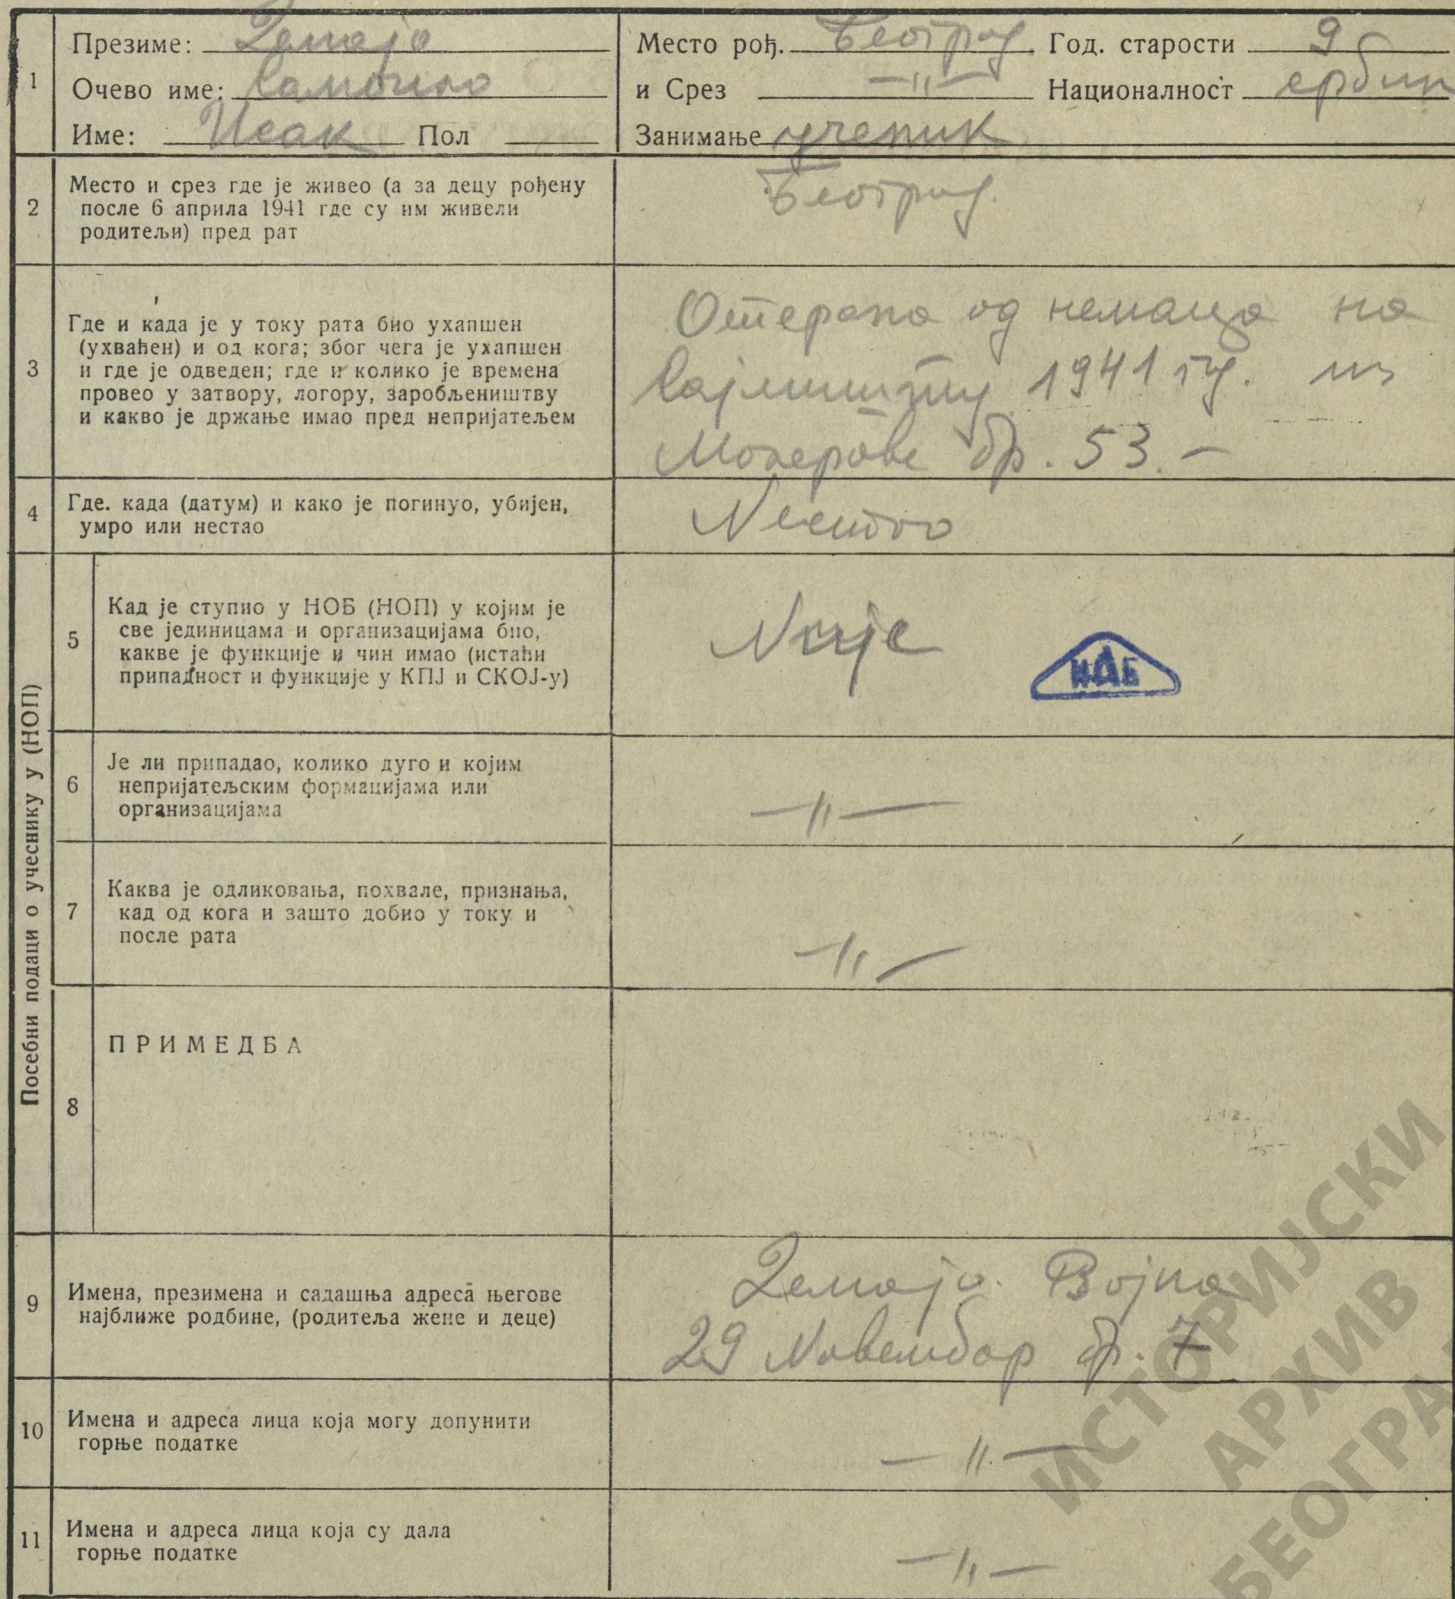 1
Презиме: Демајо
Очево име: Самоило
Име: Исак Пол
Место рођ. Београд Год. старости 9
и Срез —〃— Националност србин
Занимање ученик
2
Место и срез где је живео (а за децу рођену
после 6 априла 1941 где су им живели
родитељи) пред рат
Београд.
3
Где и када је у току рата био ухапшен
(ухваћен) и од кога; због чега је ухапшен
и где је одведен; где и колико је времена
провео у затвору, логору, заробљеништву
и какво је држање имао пред непријатељем
Отерано од немаца на
Сајмишту 1941 год. из
бр. 53.—
4
Где. када (датум) и како је погинуо, убијен,
умро или нестао
Нестао
Посебни подаци о учеснику у (НОП)
5
Кад је ступио у НОБ (НОП) у којим је
све јединицама и организацијама био,
какве је функције и чин имао (истаћи
припадност и функције у КПЈ и СКОЈ-у)
Није
ИАБ
6
Је ли припадао, колико дуго и којим
непријатељским формацијама или
организацијама
—〃—
7
Каква је одликовања, похвале, признања,
кад од кога и зашто добио у току и
после рата
—〃—
8
ПРИМЕДБА
9
Имена, презимена и садашња адреса његове
најближе родбине, (родитеља жене и деце)
Демајо Војна
29 Новембар бр. 7
10
Имена и адреса лица која могу допунити
горње податке
—〃—
11
Имена и адреса лица која су дала
горње податке
—〃—
ИСТОРИЈСКИ
АРХИВ
БЕОГРА